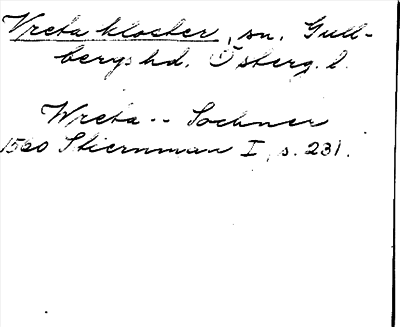 Vreta kloster, sn. Gull-
bergs hd. Österg. l.
Wreta -- Sochner
1560 Stiernman I, s. 231.